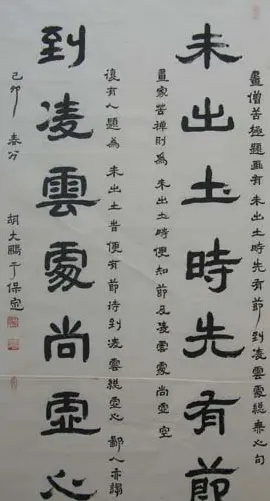 畫僧苦極題画有 未出土時先有節 到凌雲處緫無心句
未出土時先有節
畫家苦禅則爲 未出土時便知節 及凌雲處尚虛空
復有人題爲 未出土旹便有節 待到凌雲緫虛心 鄙人亦謅
到凌雲處尚虛心
己卯 春分 胡大鵬于保定